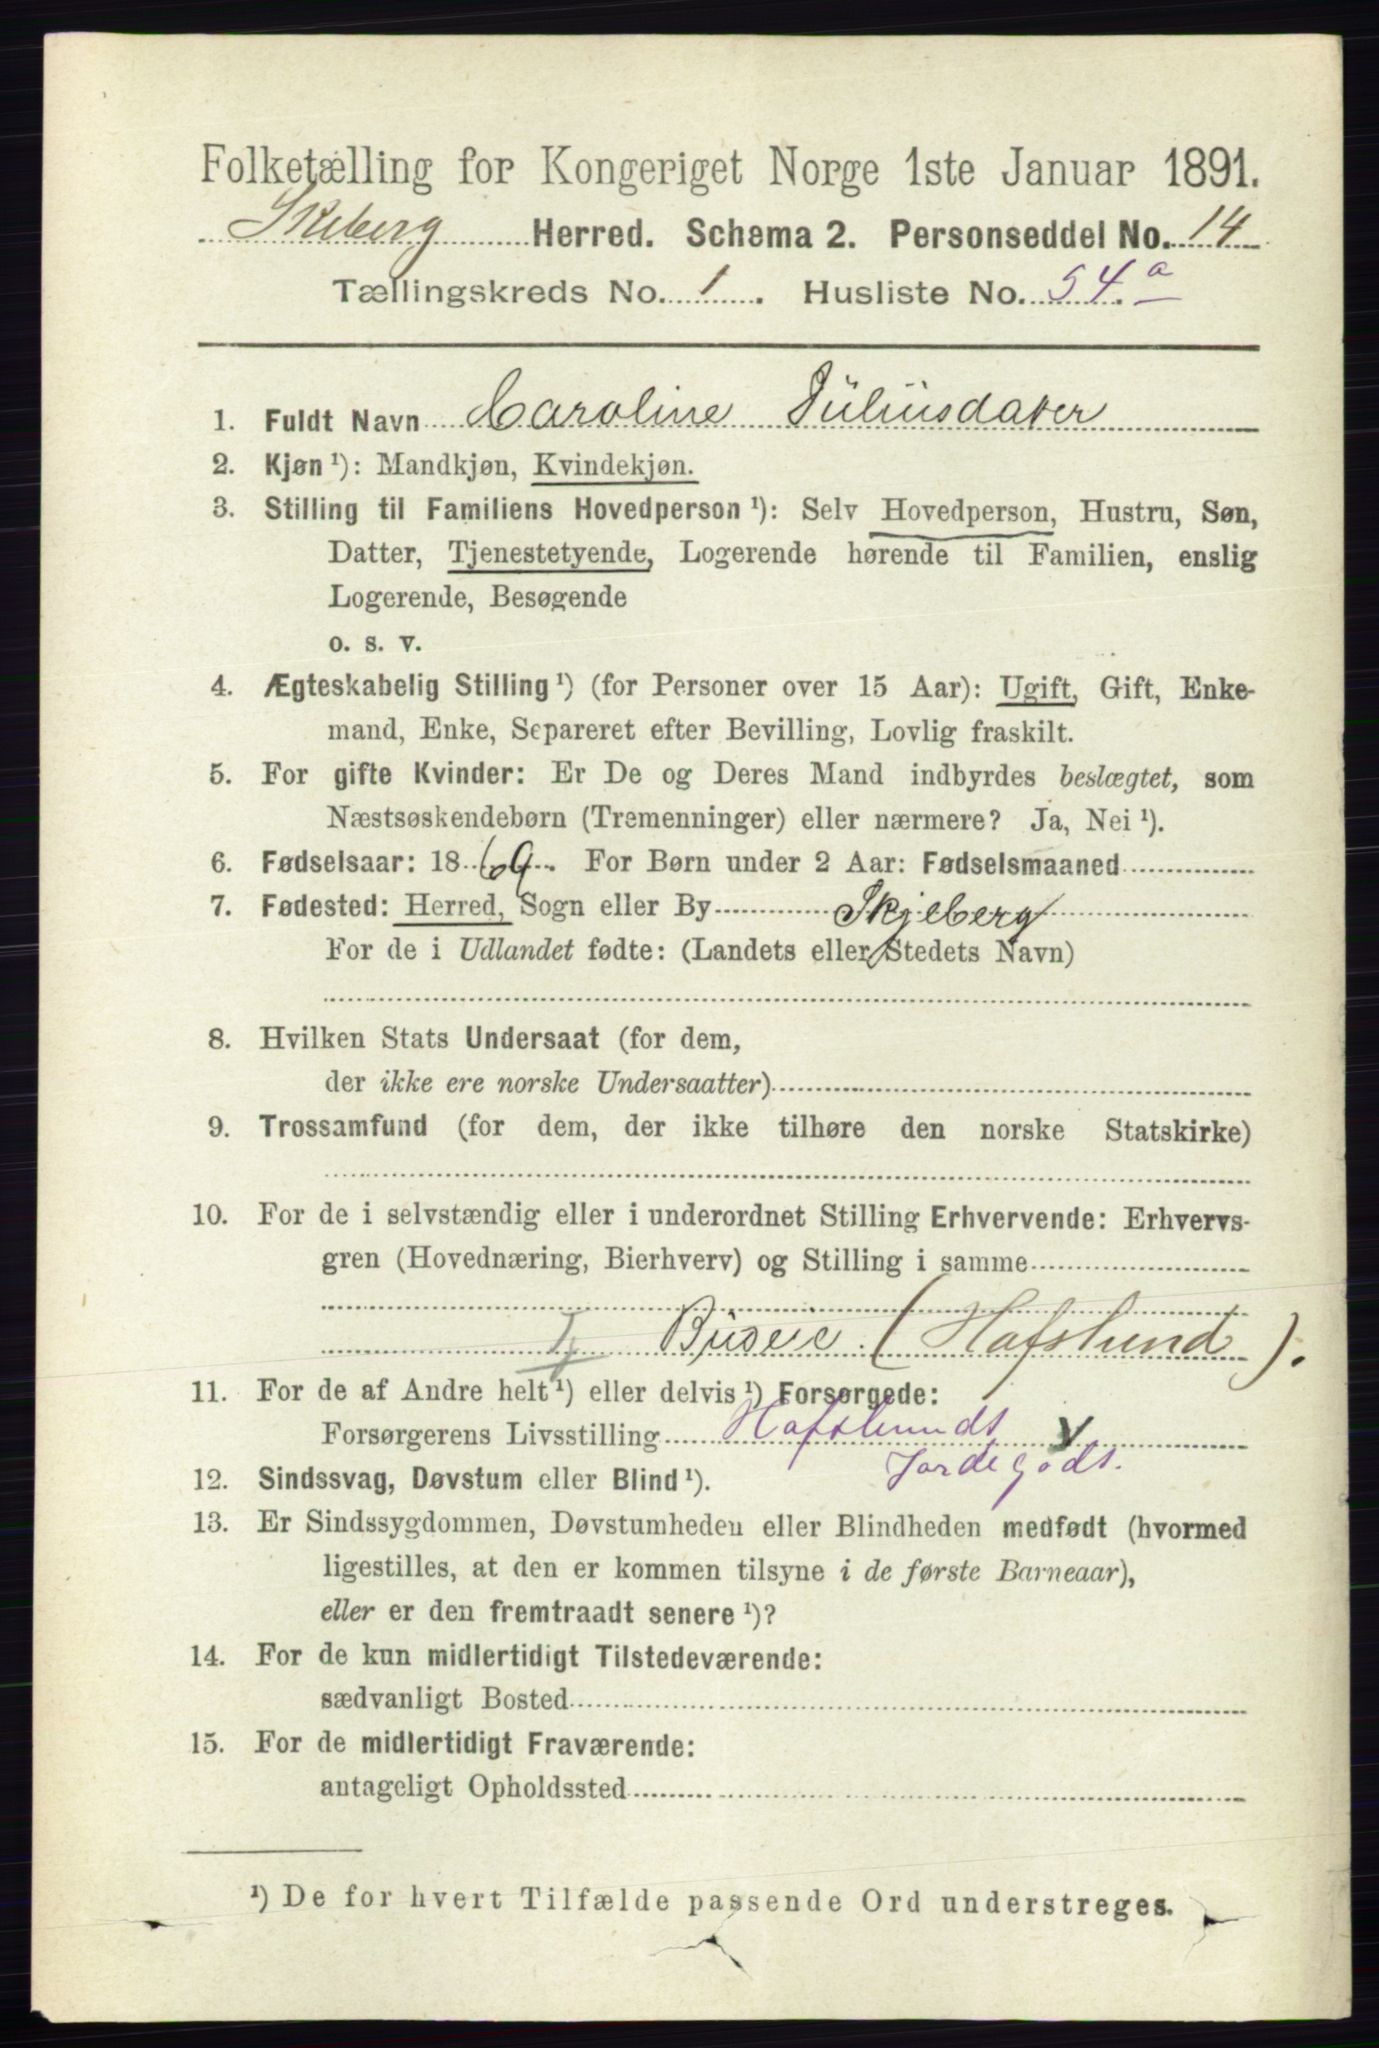 Folketælling for Kongeriget Norge 1ste Januar 1891.
Skeberg Herred. Schema 2. Personseddel No. 14
Tællingskreds No. 1. Husliste No. 54.a
1. Fuldt Navn Caroline Juliusdater
2. Kjøn ¹): Mandkjøn, Kvindekjøn.
3. Stilling til Familiens Hovedperson ¹): Selv Hovedperson, Hustru, Søn,
Datter, Tjenestetyende, Logerende hørende til Familien, enslig
Logerende, Besøgende
o. s. v.
4. Ægteskabelig Stilling ¹) (for Personer over 15 Aar): Ugift, Gift, Enke-
mand, Enke, Separeret efter Bevilling, Lovlig fraskilt.
5. For gifte Kvinder: Er De og Deres Mand indbyrdes beslægtet, som
Næstsøskendebørn (Tremenninger) eller nærmere? Ja, Nei ¹).
6. Fødselsaar: 1869. For Børn under 2 Aar: Fødselsmaaned
7. Fødested: Herred, Sogn eller By Skjeberg
For de i Udlandet fødte: (Landets eller Stedets Navn)
8. Hvilken Stats Undersaat (for dem,
der ikke ere norske Undersaatter)
9. Trossamfund (for dem, der ikke tilhøre den norske Statskirke)
10. For de i selvstændig eller i underordnet Stilling Erhvervende: Erhvervs-
gren (Hovednæring, Bierhverv) og Stilling i samme
Budeie (Hafslund).
11. For de af Andre helt ¹) eller delvis ¹) Forsørgede:
Forsørgerens Livsstilling Hafslunds
Jordegods.
12. Sindssvag, Døvstum eller Blind ¹).
13. Er Sindssygdommen, Døvstumheden eller Blindheden medfødt (hvormed
ligestilles, at den er kommen tilsyne i de første Barneaar),
eller er den fremtraadt senere ¹)?
14. For de kun midlertidigt Tilstedeværende:
sædvanligt Bosted
15. For de midlertidigt Fraværende:
antageligt Opholdssted
¹) De for hvert Tilfælde passende Ord understreges.